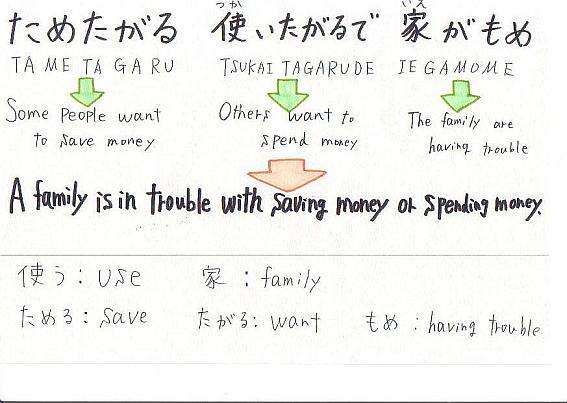 つか いえ
ためたがる 使いたがるで 家がもめ
TA ME TA GA RU TSUKAI TAGARUDE IE GAMOME
Some people want Others want to The family are
to save money spend money having trouble
A family is in trouble with saving money or spending money.
使う : use 家 : family
ためる : save たがる : want もめ : having trouble